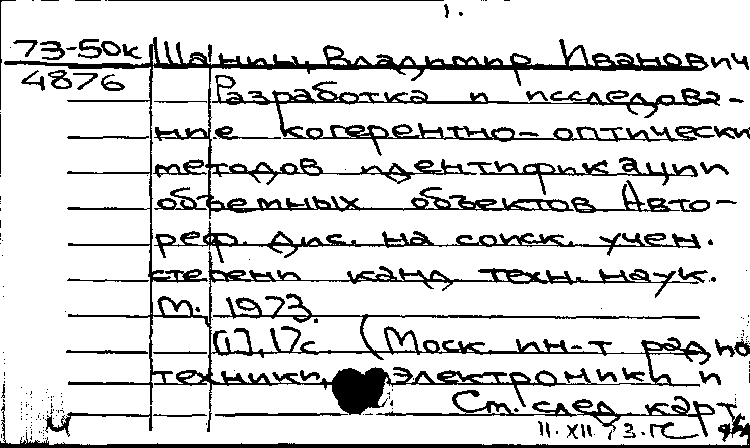 1.
73-50к Шанин, Владимир Иванович
4876 Разработка и исследова-
ние когерентно-оптически
методов идентификации
объемных объектов Авто-
реф. дис. на соиск. учен.
степени канд техн. наук.
М., 1973.
[1], 17с. (Моск. ин-т радио
техники, электроники и
См. след карт
11.XII 73.
ч